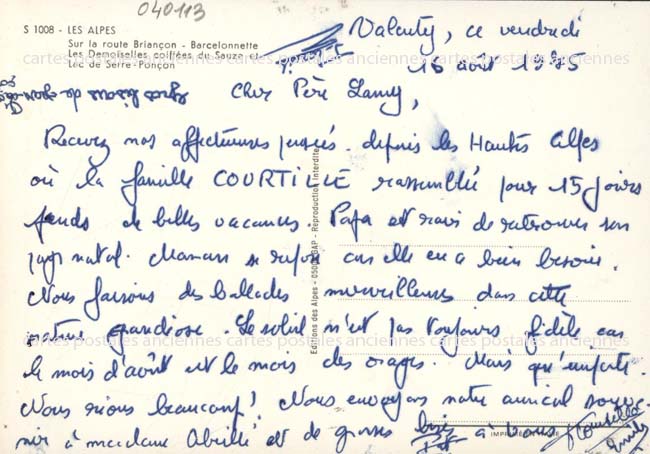 040113
S 1008 - LES ALPES
Sur la route Briançon - Barcelonnette
Les Demoiselles coiffées du Sauze et
Lac de Serre-Ponçon
Valenty, ce vendredi
16 août 1975
Cher Père Lamy,
Gros bisous de
Recevez nos affectueuses pensées depuis les Hautes Alpes
où la famille COURTILLE rassemblée pour 15 jours
prends de belles vacances. Papa est ravi de retrouver son
pays natal. Maman se repose car elle en a bien besoin.
Nous faisons des ballades merveilleuses dans cette
nature grandiose. Le soleil n'est pas toujours fidèle car
le mois d'août est le mois des orages. Mais qu'importe.
Nous rions beaucoup! Nous envoyons notre amical souve-
nir à madame Abeille et de grosses bises à tous
Editions des Alpes - 05000 GAP - Reproduction interdite
cartes postales anciennes cartes postales anciennes cartes postales anciennes
cartes postales anciennes cartes postales anciennes cartes postales anciennes